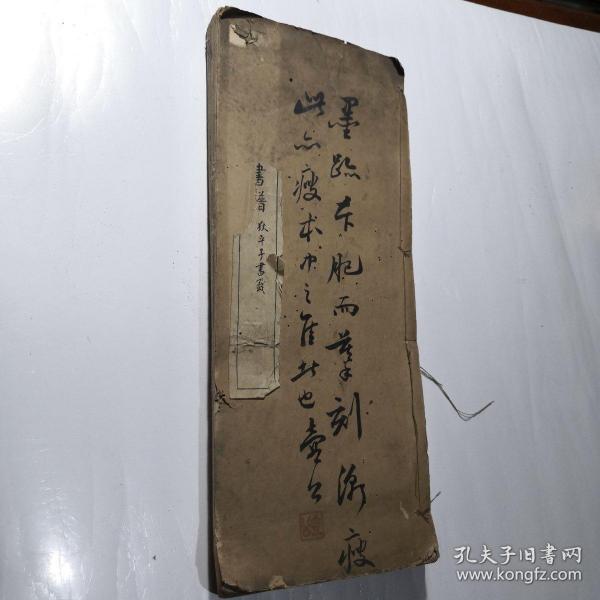 墨跡本肥而摹刻渐瘦
此亦瘦本中之佳者也壶公
書谱 狄平子書籤
孔夫子旧书网
www.kongfz.com